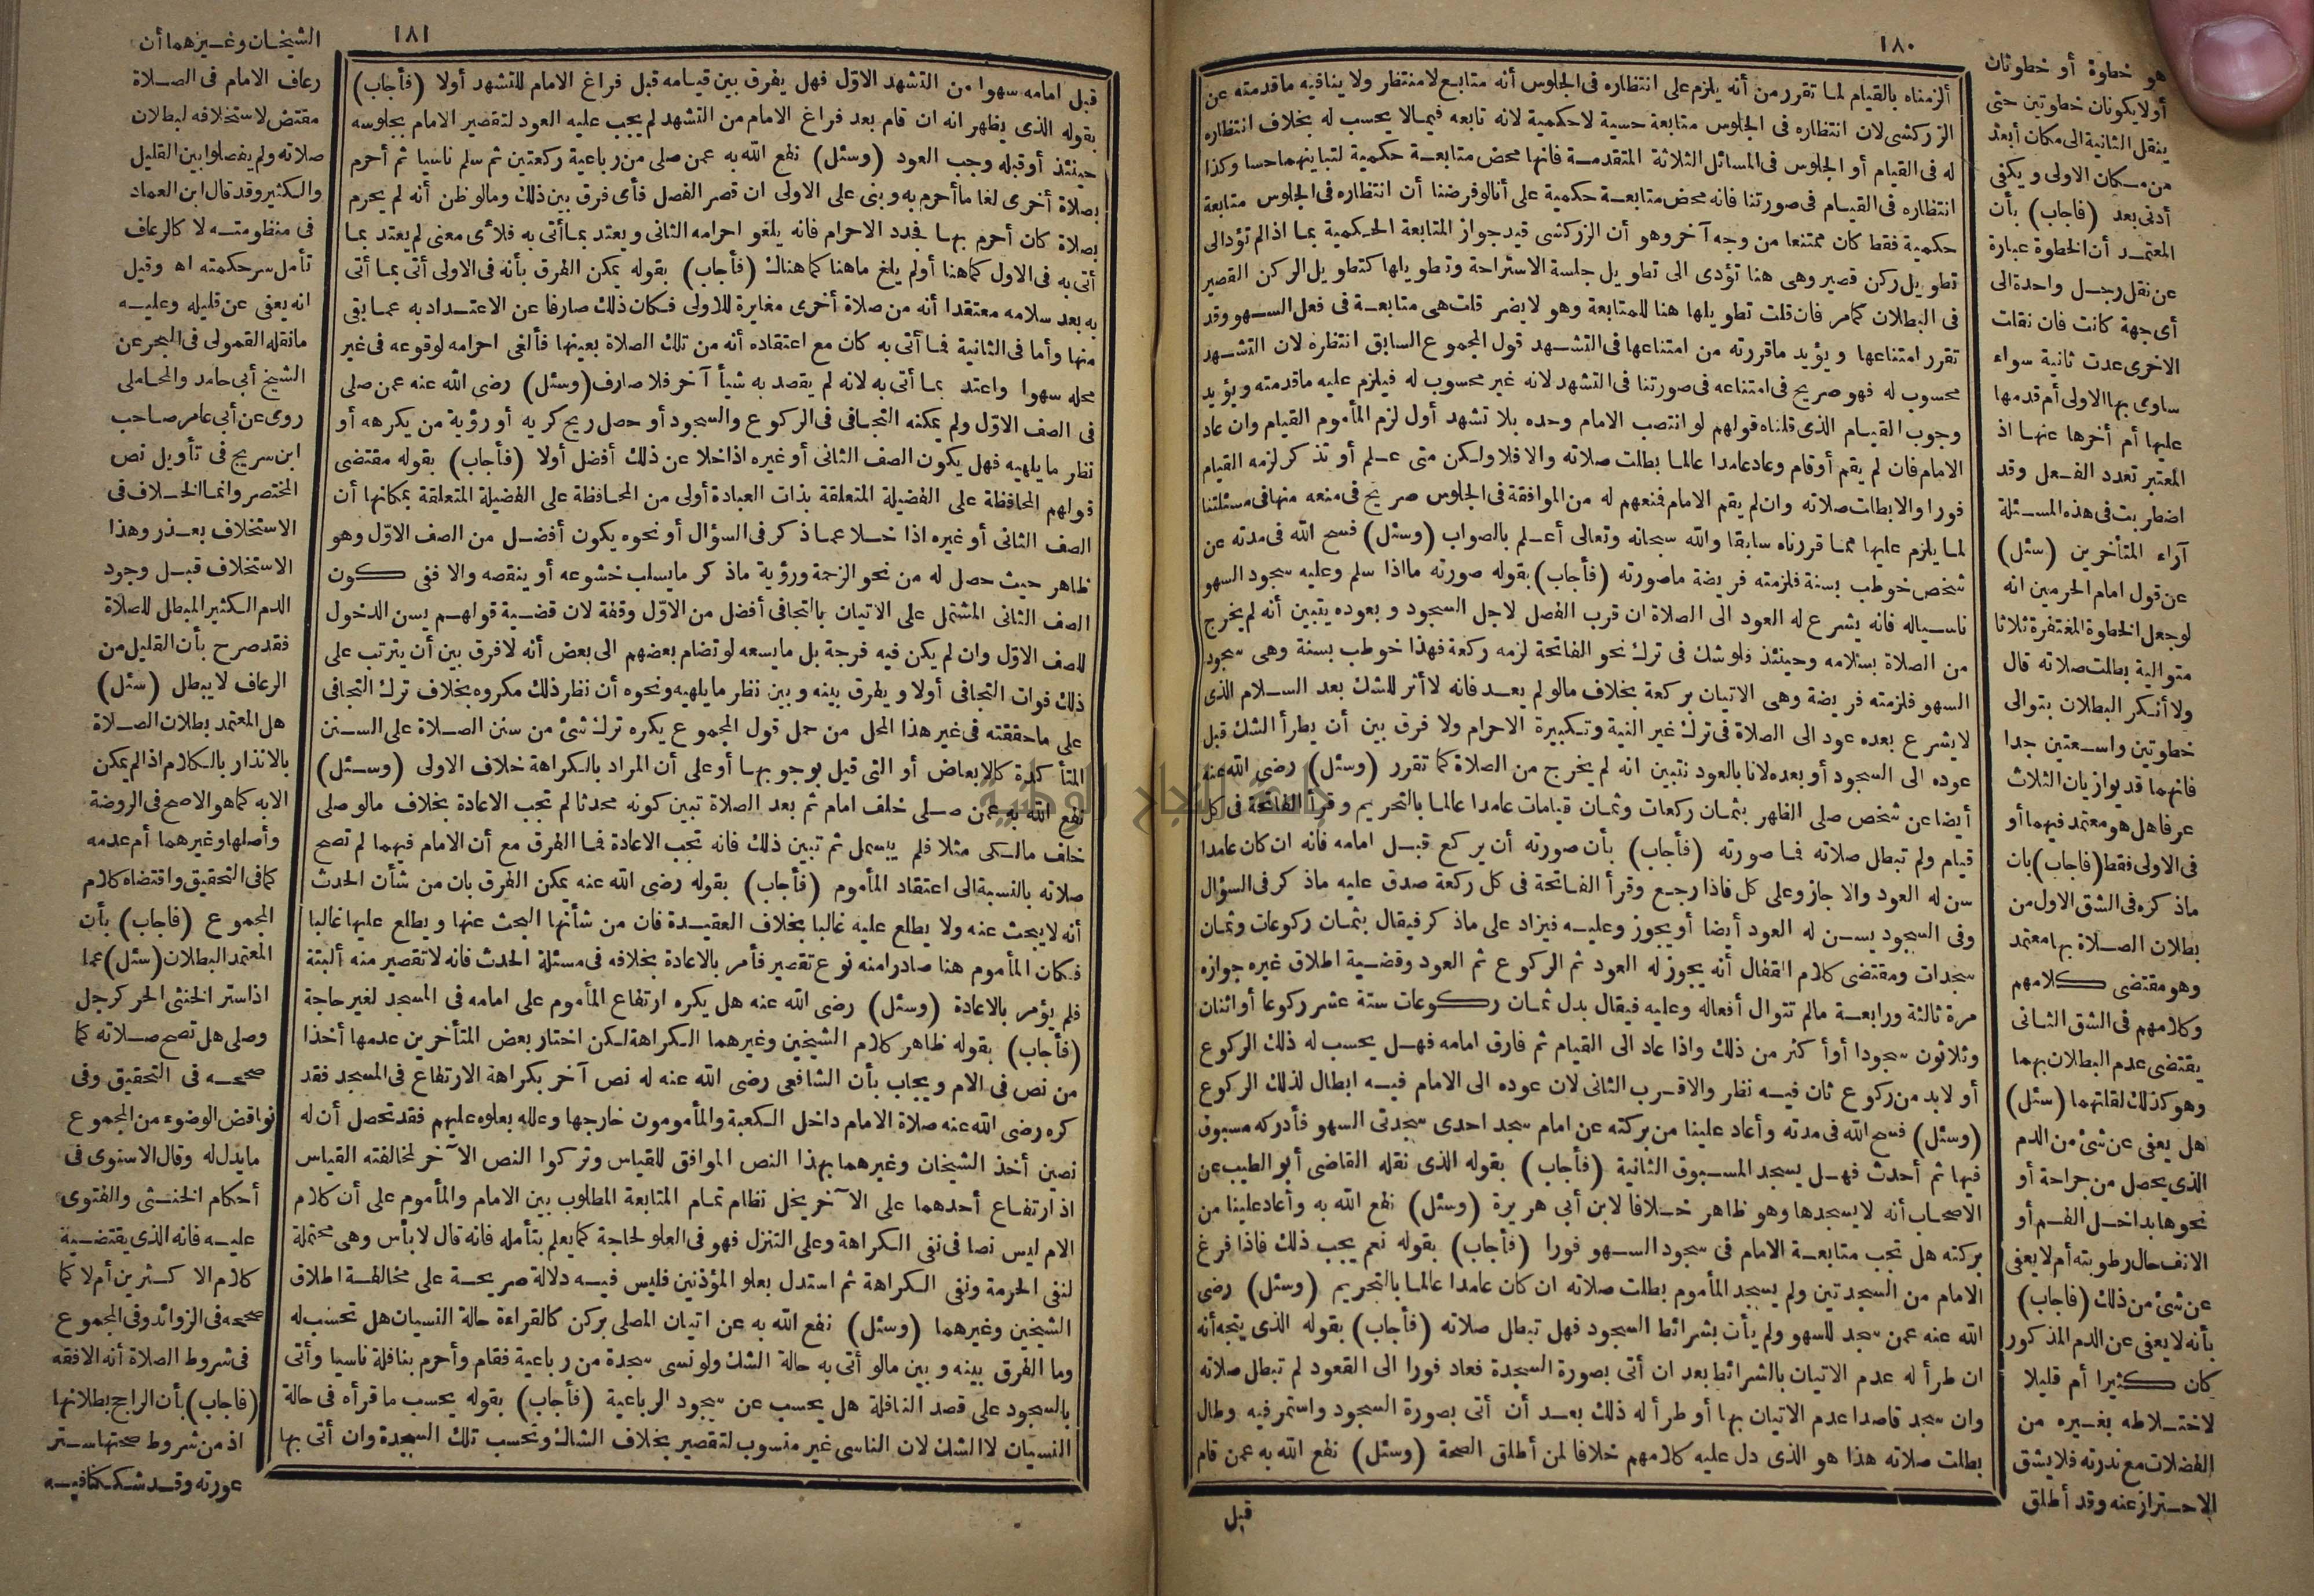 ١٨٠
ألزمناه بالقيام لما تقرر من أنه يلزم على انتظاره فى الجلوس أنه متابع لا منتظر ولا ينافيه ما قدمته عن
الزركشى لان انتظاره فى الجلوس متابعة حسية لا حكمية لانه تابعه فيما لا يحسب له بخلاف انتظاره
له فى القيام أو الجلوس فى المسائل الثلاثة المتقدمة فانها محض متابعة حكمية لتباينهما حسا وكذا
انتظاره فى القيام فى صورتنا فانه محض متابعة حكمية على أنا لو فرضنا أن انتظاره فى الجلوس متابعة
حكمية فقط كان ممتنعا من وجه آخر وهو أن الزركشى قيد جواز المتابعة الحكمية بما اذا لم تؤد الى
تطويل ركن قصير وهى هنا تؤدى الى تطويل جلسة الاستراحة وتطويلها كتطويل الركن القصير
فى البطلان كما مر فان قلت تطويلها هنا للمتابعة وهو لا يضر قلت هى متابعة فى فعل السهو وقد
تقرر امتناعها ويؤيد ما قررته من امتناعها فى التشهد قول المجموع السابق انتظره لان التشهد
محسوب له فهو صريح فى امتناعه فى صورتنا فى التشهد لانه غير محسوب له فيلزم عليه ما قدمته ويؤيد
وجوب القيام الذى قلناه قولهم لو انتصب الامام وحده بلا تشهد أول لزم المأموم القيام وان عاد
الامام فان لم يقم أو قام وعاد عامدا عالما بطلت صلاته والا فلا ولكن متى علم أو تذكر لزمه القيام
فورا والا بطلت صلاته وان لم يقم الامام فمنعهم له من الموافقة فى الجلوس صريح فى منعه منها فى مسئلتنا
لما يلزم عليها مما قررناه سابقا والله سبحانه وتعالى أعلم بالصواب (وسئل) فسح الله فى مدته عن
شخص خوطب بسنة فلزمته فريضة ما صورته (فأجاب) بقوله صورته ما اذا سلم وعليه سجود السهو
ناسيا له فانه يشرع له العود الى الصلاة ان قرب الفصل لاجل السجود وبعوده يتبين أنه لم يخرج
من الصلاة بسلامه وحينئذ فلو شك فى ترك نحو الفاتحة لزمه ركعة فهذا خوطب بسنة وهى سجود
السهو فلزمته فريضة وهى الاتيان بركعة بخلاف ما لو لم يعد فانه لا أثر للشك بعد السلام الذى
لا يشرع بعده عود الى الصلاة فى ترك غير النية وتكبيرة الاحرام ولا فرق بين أن يطرأ الشك قبل
عوده الى السجود أو بعده لانا بالعود نتبين انه لم يخرج من الصلاة كما تقرر (وسئل) رضى الله عنه
أيضا عن شخص صلى الظهر بثمان ركعات وثمان قيامات عامدا عالما بالتحريم وقرأ الفاتحة فى كل
قيام ولم تبطل صلاته فما صورته (فأجاب) بأن صورته أن يركع قبل امامه فانه ان كان عامدا
سن له العود والا جاز وعلى كل فاذا رجع وقرأ الفاتحة فى كل ركعة صدق عليه ما ذكر فى السؤال
وفى السجود يسن له العود أيضا أو يجوز وعليه فيزاد على ما ذكر فيقال بثمان ركوعات وثمان
سجدات ومقتضى كلام القفال أنه يجوز له العود ثم الركوع ثم العود وقضية اطلاق غيره جوازه
مرة ثالثة ورابعة ما لم تتوال أفعاله وعليه فيقال بدل ثمان ركوعات ستة عشر ركوعا أو اثنان
وثلاثون سجودا أو أكثر من ذلك واذا عاد الى القيام ثم فارق امامه فهل يحسب له ذلك الركوع
أو لا بد من ركوع ثان فيه نظر والاقرب الثانى لان عوده الى الامام فيه ابطال لذلك الركوع
(وسئل) فسح الله فى مدته وأعاد علينا من بركته عن امام سجد احدى سجدتى السهو فأدركه مسبوق
فيها ثم أحدث فهل يسجد المسبوق الثانية (فأجاب) بقوله الذى نقله القاضى أبو الطيب عن
الاصحاب أنه لا يسجدها وهو ظاهر خلافا لابن أبى هريرة (وسئل) نفع الله به وأعاد علينا من
بركته هل تجب متابعة الامام فى سجود السهو فورا (فأجاب) بقوله نعم يجب ذلك فاذا فرغ
الامام من السجدتين ولم يسجد المأموم بطلت صلاته ان كان عامدا عالما بالتحريم (وسئل) رضى
الله عنه عمن سجد للسهو ولم يأت بشرائط السجود فهل تبطل صلاته (فأجاب) بقوله الذى يتجه أنه
ان طرأ له عدم الاتيان بالشرائط بعد ان أتى بصورة السجدة فعاد فورا الى القعود لم تبطل صلاته
وان سجد قاصدا عدم الاتيان بها أو طرأ له ذلك بعد أن أتى بصورة السجود واستمر فيه وطال
بطلت صلاته هذا هو الذى دل عليه كلامهم خلافا لمن أطلق الصحة (وسئل) نفع الله به عمن قام
قبل
هو خطوة أو خطوتان
أو لا يكونان خطوتين حتى
ينقل الثانية الى مكان أبعد
من مكان الاولى ويكفى
أدنى بعد (فاجاب) بأن
المعتمد أن الخطوة عبارة
عن نقل رجل واحدة الى
أى جهة كانت فان نقلت
الاخرى عدت ثانية سواء
ساوى بها الاولى أم قدمها
عليها أم أخرها عنها اذ
المعتبر تعدد الفعل وقد
اضطربت فى هذه المسئلة
آراء المتأخرين (سئل)
عن قول امام الحرمين انه
لو جعل الخطوة المغتفرة ثلاثا
متوالية بطلت صلاته قال
ولا أنكر البطلان بتوالى
خطوتين واسعتين جدا
فانهما قد يوازيان الثلاث
عرفا هل هو معتمد فيهما أو
فى الاولى فقط (فاجاب) بان
ما ذكره فى الشق الاول من
بطلان الصلاة بها معتمد
وهو مقتضى كلامهم
وكلامهم فى الشق الثانى
يقتضى عدم البطلان بهما
وهو كذلك لقلتهما (سئل)
هل يعفى عن شئ من الدم
الذى يحصل من جراحة أو
نحوها بداخل الفم أو
الانف حال رطوبته أم لا يعفى
عن شئ من ذلك (فاجاب)
بأنه لا يعفى عن الدم المذكور
كان كثيرا أم قليلا
لاختلاطه بغيره من
الفضلات مع ندرته فلا يشق
الاحتراز عنه وقد أطلق
١٨١
قبل امامه سهوا من التشهد الاول فهل يفرق بين قيامه قبل فراغ الامام للتشهد أولا (فأجاب)
بقوله الذى يظهر انه ان قام بعد فراغ الامام من التشهد لم يجب عليه العود لتقصير الامام بجلوسه
حينئذ أو قبله وجب العود (وسئل) نفع الله به عمن صلى من رباعية ركعتين ثم سلم ناسيا ثم أحرم
بصلاة أخرى لغا ما أحرم به وبنى على الاولى ان قصر الفصل فأى فرق بين ذلك وما لو ظن أنه لم يحرم
بصلاة كان أحرم بها فجدد الاحرام فانه يلغو احرامه الثانى ويعتد بما أتى به فلأى معنى لم يعتد بما
أتى به فى الاول كما هنا أو لم يلغ ما هنا كما هناك (فأجاب) بقوله يمكن الفرق بأنه فى الاولى أتى بما أتى
به بعد سلامه معتقدا أنه من صلاة أخرى مغايرة للاولى فكان ذلك صارفا عن الاعتداد به عما بقى
منها وأما فى الثانية فما أتى به كان مع اعتقاده أنه من تلك الصلاة بعينها فألغى احرامه لوقوعه فى غير
محله سهوا واعتد بما أتى به لانه لم يقصد به شيأ آخر فلا صارف (وسئل) رضى الله عنه عمن صلى
فى الصف الاول ولم يمكنه التجافى فى الركوع والسجود أو حصل ريح كريه أو رؤية من يكرهه أو
نظر ما يلهيه فهل يكون الصف الثانى أو غيره اذا خلا عن ذلك أفضل أولا (فأجاب) بقوله مقتضى
قولهم المحافظة على الفضيلة المتعلقة بذات العبادة أولى من المحافظة على الفضيلة المتعلقة بمكانها أن
الصف الثانى أو غيره اذا خلا عما ذكر فى السؤال أو نحوه يكون أفضل من الصف الاول وهو
ظاهر حيث حصل له من نحو الزحمة ورؤية ما ذكر ما يسلب خشوعه أو ينقصه والا ففى كون
الصف الثانى المشتمل على الاتيان بالتجافى أفضل من الاول وقفة لان قضية قولهم يسن الدخول
للصف الاول وان لم يكن فيه فرجة بل ما يسعه لو تضام بعضهم الى بعض أنه لا فرق بين أن يترتب على
ذلك فوات التجافى أولا ويفرق بينه وبين نظر ما يلهيه ونحوه أن نظر ذلك مكروه بخلاف ترك التجافى
على ما حققته فى غير هذا المحل من حمل قول المجموع يكره ترك شئ من سنن الصلاة على السنن
المتأكدة كالابعاض أو التى قيل بوجوبها أو على أن المراد بالكراهة خلاف الاولى (وسئل)
نفع الله به عمن صلى خلف امام ثم بعد الصلاة تبين كونه محدثا لم تجب الاعادة بخلاف ما لو صلى
خلف مالكى مثلا فلم يبسمل ثم تبين ذلك فانه تجب الاعادة فما الفرق مع أن الامام فيهما لم تصح
صلاته بالنسبة الى اعتقاد المأموم (فأجاب) بقوله رضى الله عنه يمكن الفرق بان من شأن الحدث
أنه لا يبحث عنه ولا يطلع عليه غالبا بخلاف العقيدة فان من شأنها البحث عنها ويطلع عليها غالبا
فكان المأموم هنا صادرا منه نوع تقصير فأمر بالاعادة بخلافه فى مسئلة الحدث فانه لا تقصير منه ألبتة
فلم يؤمر بالاعادة (وسئل) رضى الله عنه هل يكره ارتفاع المأموم على امامه فى المسجد لغير حاجة
(فأجاب) بقوله ظاهر كلام الشيخين وغيرهما الكراهة لكن اختار بعض المتأخرين عدمها أخذا
من نص فى الام ويجاب بأن الشافعى رضى الله عنه له نص آخر بكراهة الارتفاع فى المسجد فقد
كره رضى الله عنه صلاة الامام داخل الكعبة والمأمومون خارجها وعلله بعلوه عليهم فقد تحصل أن له
نصين أخذ الشيخان وغيرهما بهذا النص الموافق للقياس وتركوا النص الآخر لمخالفته القياس
اذ ارتفاع أحدهما على الآخر يخل نظام تمام المتابعة المطلوب بين الامام والمأموم على أن كلام
الام ليس نصا فى نفى الكراهة وعلى التنزل فهو فى العلو لحاجة كما يعلم بتأمله فانه قال لا بأس وهى محتملة
لنفى الحرمة ونفى الكراهة ثم استدل بعلو المؤذنين فليس فيه دلالة صريحة على مخالفة اطلاق
الشيخين وغيرهما (وسئل) نفع الله به عن اتيان المصلى بركن كالقراءة حالة النسيان هل تحسب له
وما الفرق بينه وبين ما لو أتى به حالة الشك ولو نسى سجدة من رباعية فقام وأحرم بنافلة ناسيا وأتى
بالسجود على قصد النافلة هل يحسب عن سجود الرباعية (فأجاب) بقوله يحسب ما قرأه فى حالة
النسيان لا الشك لان الناسى غير منسوب لتقصير بخلاف الشاك وتحسب تلك السجدة وان أتى بها
الشيخان وغيرهما أن
رعاف الامام فى الصلاة
مقتض لاستخلافه لبطلان
صلاته ولم يفصلوا بين القليل
والكثير وقد قال ابن العماد
فى منظومته لا كالرعاف
تأمل سر حكمته اه وقيل
انه يعفى عن قليله وعليه
ما نقله القمولى فى البحر عن
الشيخ أبى حامد والمحاملى
روى عن أبى عامر صاحب
ابن سريج فى تأويل نص
المختصر وانما الخلاف فى
الاستخلاف بعذر وهذا
الاستخلاف قبل وجود
الدم الكثير المبطل للصلاة
فقد صرح بأن القليل من
الرعاف لا يبطل (سئل)
هل المعتمد بطلان الصلاة
بالانذار بالكلام اذا لم يمكن
الا به كما هو الاصح فى الروضة
وأصلها وغيرهما أم عدمه
كما فى التحقيق واقتضاه كلام
المجموع (فاجاب) بأن
المعتمد البطلان (سئل) عما
اذا ستر الخنثى الحر كرجل
وصلى هل تصح صلاته كما
صححه فى التحقيق وفى
نواقض الوضوء من المجموع
ما يدل له وقال الاسنوى فى
أحكام الخنثى والفتوى
عليه فانه الذى يقتضيه
كلام الاكثرين أم لا كما
صححه فى الزوائد وفى المجموع
فى شروط الصلاة أنه الافقه
(فاجاب) بأن الراجح بطلانها
اذ من شروط صحتها ستر
عورته وقد شككنا فيه